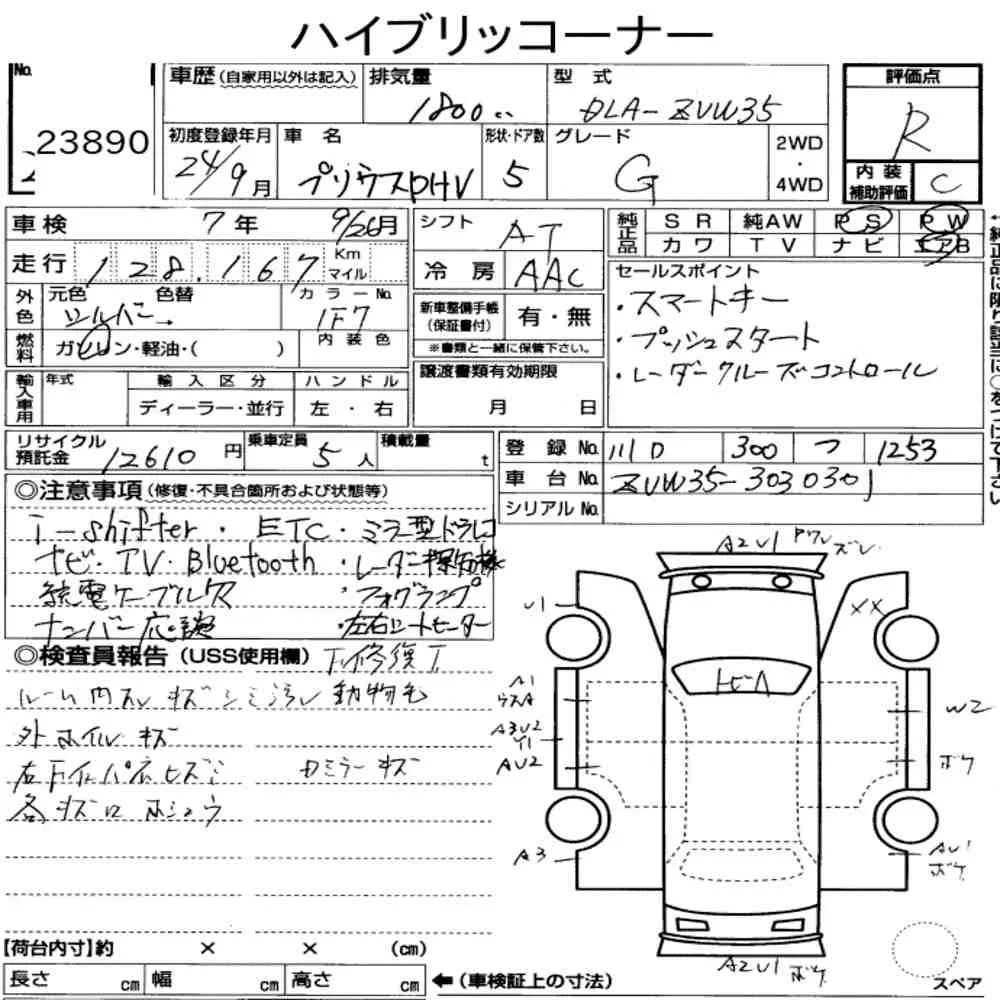 ハイブリッコーナー
No.
23890
車歴(自家用以外は記入)
排気量
1800cc
型 式
DLA-ZVW35
評価点
R
内装補助評価
C
初度登録年月
24/9月
車 名
プリウスPHV
形状・ドア数
5
グレード
G
2WD
・
4WD
車検
7年 9/26月
走行
128,167
Km
マイル
外色
元色 色替
シルバー→
カラーNo.
1F7
燃料
ガソリン・軽油・( )
内装色
輸入車用
年式
輸入区分
ディーラー・並行
ハンドル
左・右
シフト
AT
冷 房
AAC
新車整備手帳
(保証書付)
有・無
※書類と一緒に保管下さい。
譲渡書類有効期限
月 日
純正品
SR 純AW PS PW
カワ TV ナビ エアB
セールスポイント
・スマートキー
・プッシュスタート
・レーダークルーズコントロール
リサイクル預託金
12610円
乗車定員
5人
積載量
t
登録No.
川D 300 つ 1253
車台No.
ZVW35-3030301
シリアルNo.
◎注意事項(修復・不具合箇所および状態等)
i-shifter・ETC・ミラー型ドラレコ
ナビ・TV・Bluetooth・レーダー探知機
充電ケーブル欠 ・フォグランプ
ナンバー応談 ・左右シートヒーター
◎検査員報告(USS使用欄)
ルーム内スレ キズ シミ 汚レ 動物毛
外ホイル キズ
Dミラー キズ
各キズロ ホシュウ
【荷台内寸】約 × × (cm)
長さ cm 幅 cm 高さ cm
←(車検証上の寸法)
A2U1
ズレ
U1
XX
トビA
A1
ウスA
A3U2
Y1
AU2
W2
ボケ
A3
AU1
ボケ
A2U1 ボケ
スペア